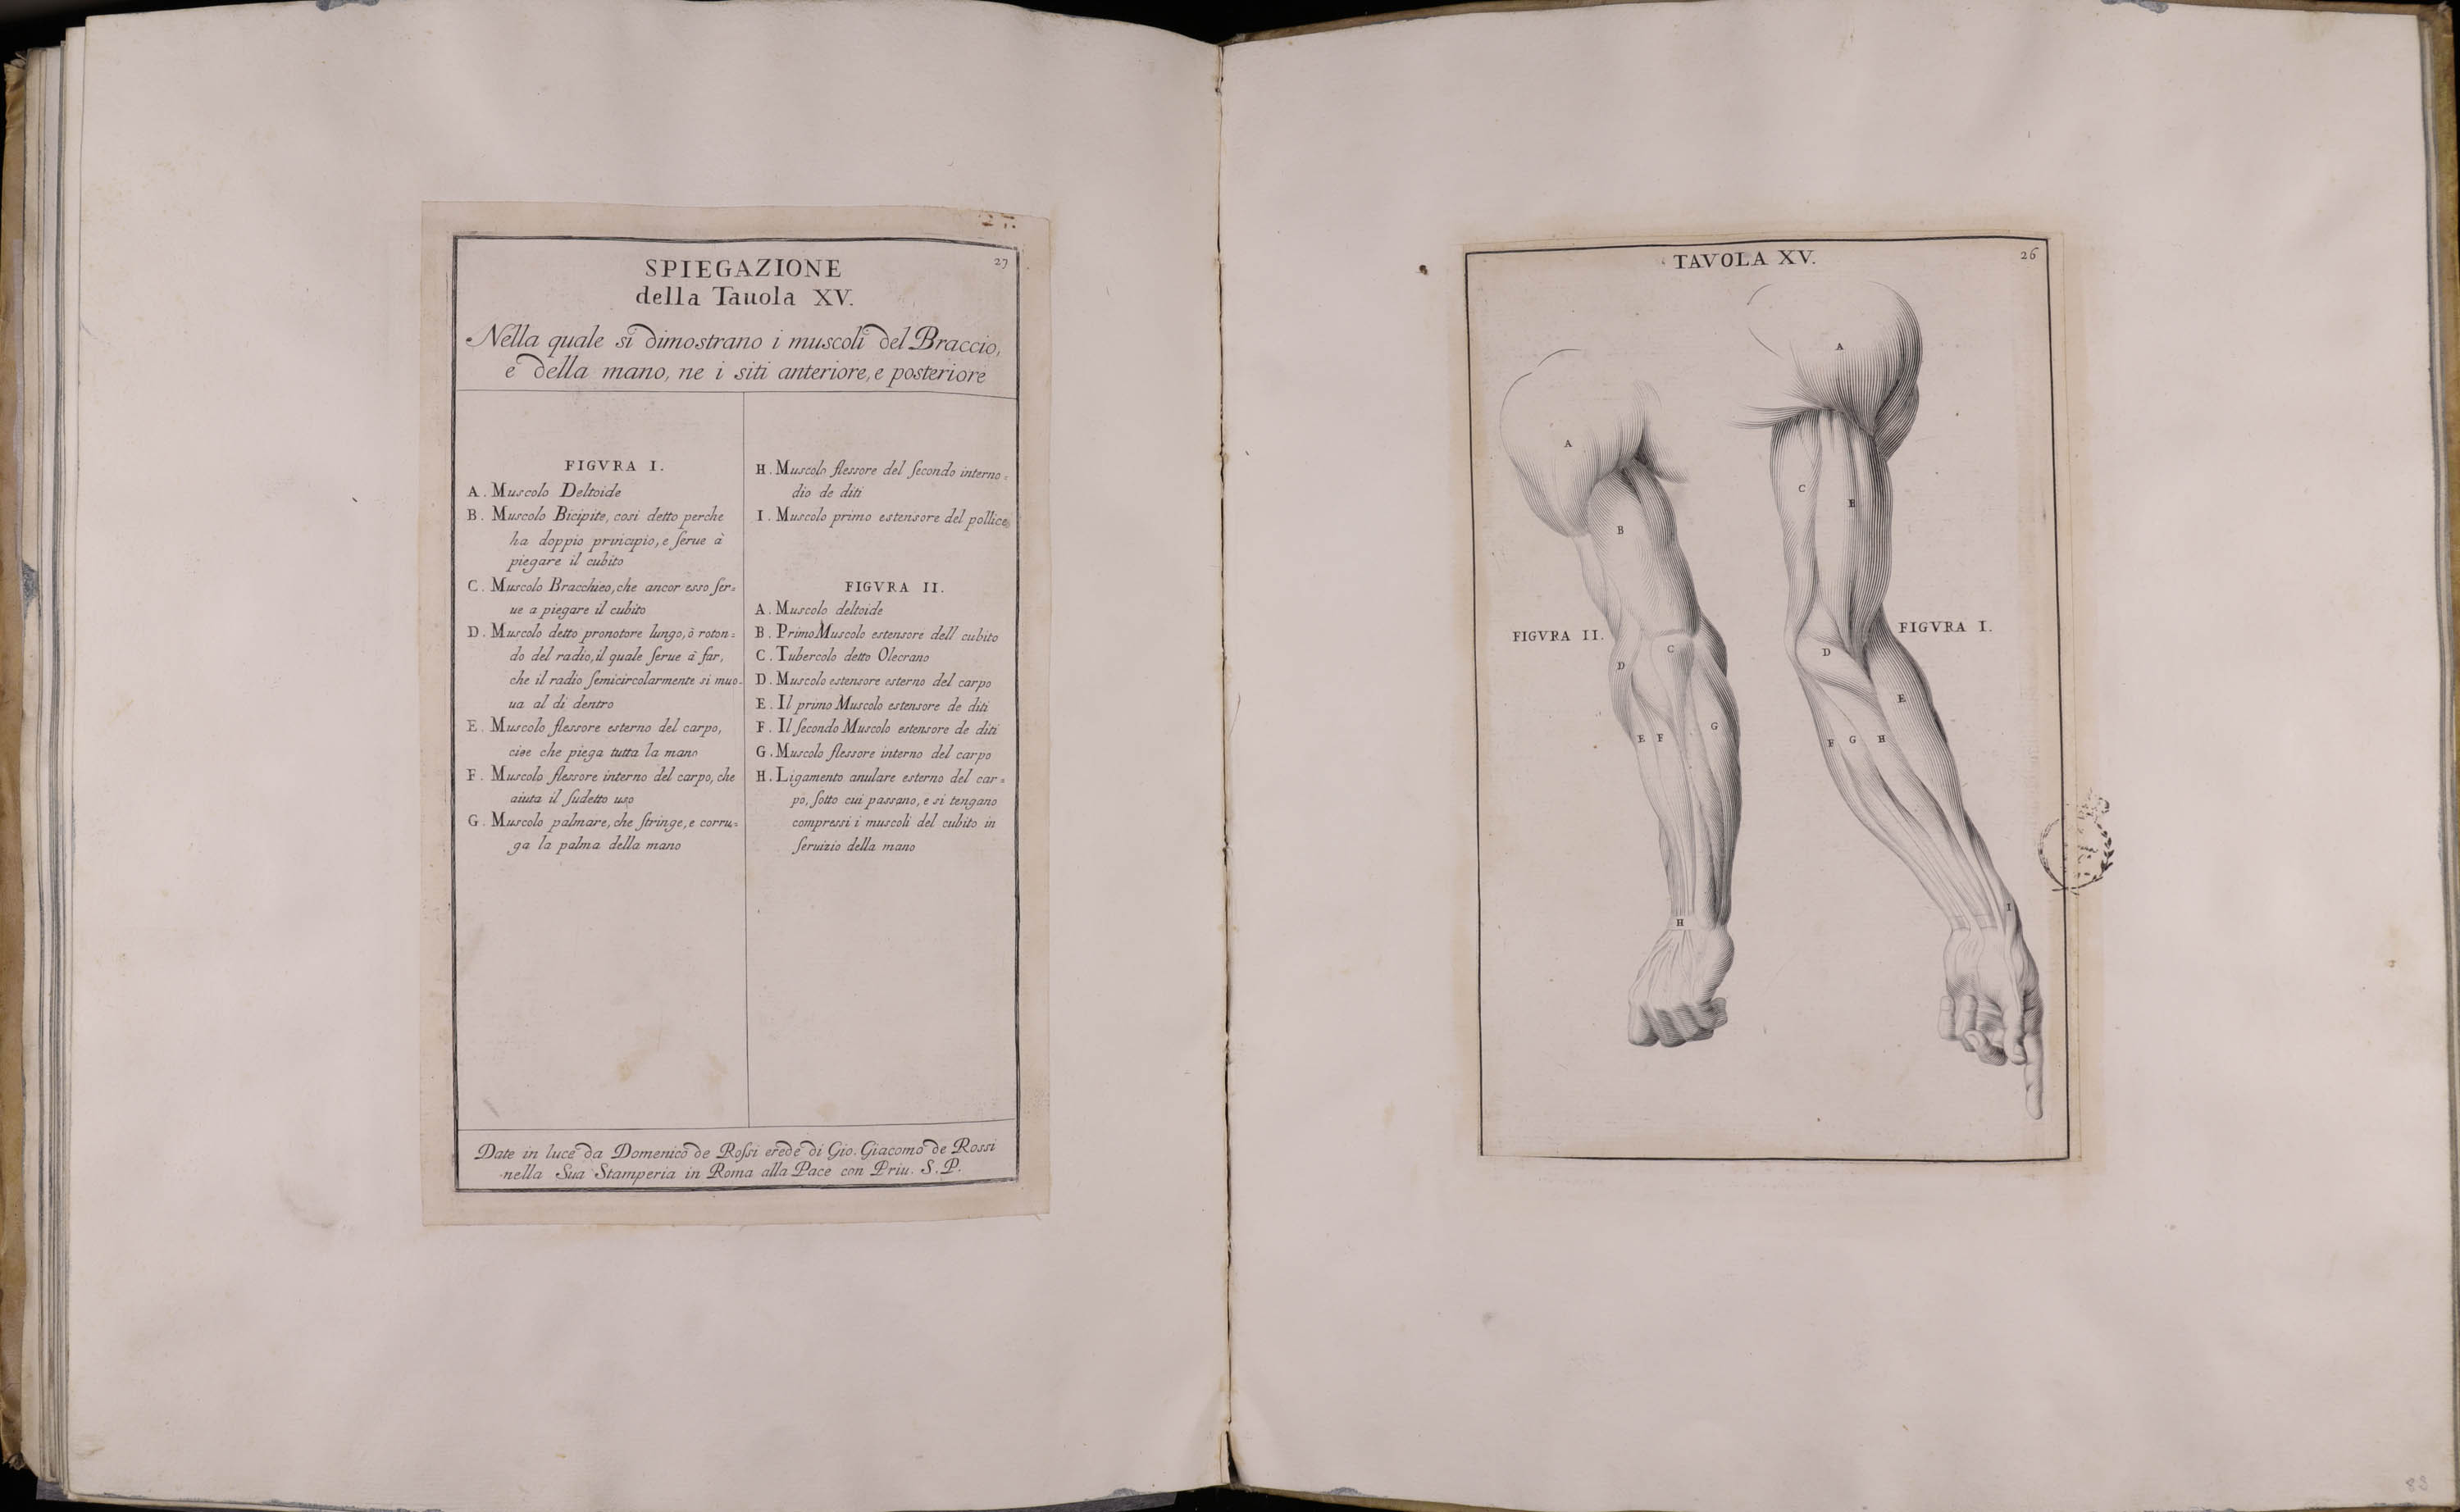 27.
27
SPIEGAZIONE
della Tauola XV.
Nella quale si dimostrano i muscoli del Braccio,
e della mano, ne i siti anteriore, e posteriore
FIGVRA I.
A. Muscolo Deltoide
B. Muscolo Bicipite, cosi detto perche
ha doppio principio, e ſerue à
piegare il cubito
C. Muscolo Bracchieo, che ancor esso ſer=
ue a piegare il cubito
D. Muscolo detto pronotore lungo, ò roton=
do del radio, il quale ſerue à far,
che il radio ſemicircolarmente si muo=
ua al di dentro
E. Muscolo flessore esterno del carpo,
cioe che piega tutta la mano
F. Muscolo flessore interno del carpo, che
aiuta il ſudetto uso
G. Muscolo palmare, che ſtringe, e corru=
ga la palma della mano
H. Muscolo flessore del ſecondo interno=
dio de diti
I. Muscolo primo estensore del pollice
FIGVRA II.
A. Muscolo deltoide
B. Primo Muscolo estensore dell cubito
C. Tubercolo detto Olecrano
D. Muscolo estensore esterno del carpo
E. Il primo Muscolo estensore de diti
F. Il ſecondo Muscolo estensore de diti
G. Muscolo flessore interno del carpo
H. Ligamento anulare esterno del car=
po, ſotto cui passano, e si tengano
compressi i muscoli del cubito in
ſeruizio della mano
Date in luce da Domenico de Roſsi erede di Gio. Giacomo de Rossi
nella Sua Stamperia in Roma alla Pace con Priu. S. P.
TAVOLA XV.
26
A
A
C
B
B
FIGVRA II.
FIGVRA I.
C
D
D
E
G
E F
F G H
I
H
88